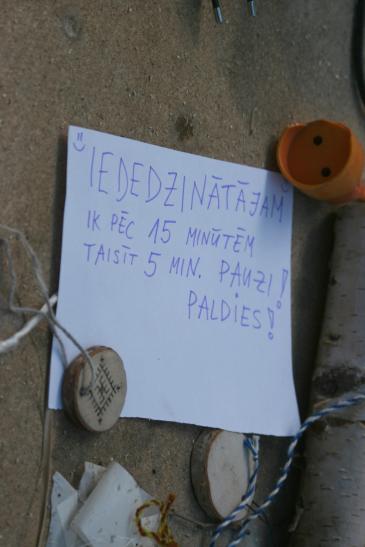 IEDEDZINĀTĀJAM
IK PĒC 15 MINŪTĒM
TAISĪT 5 MIN. PAUZI!
PALDIES!